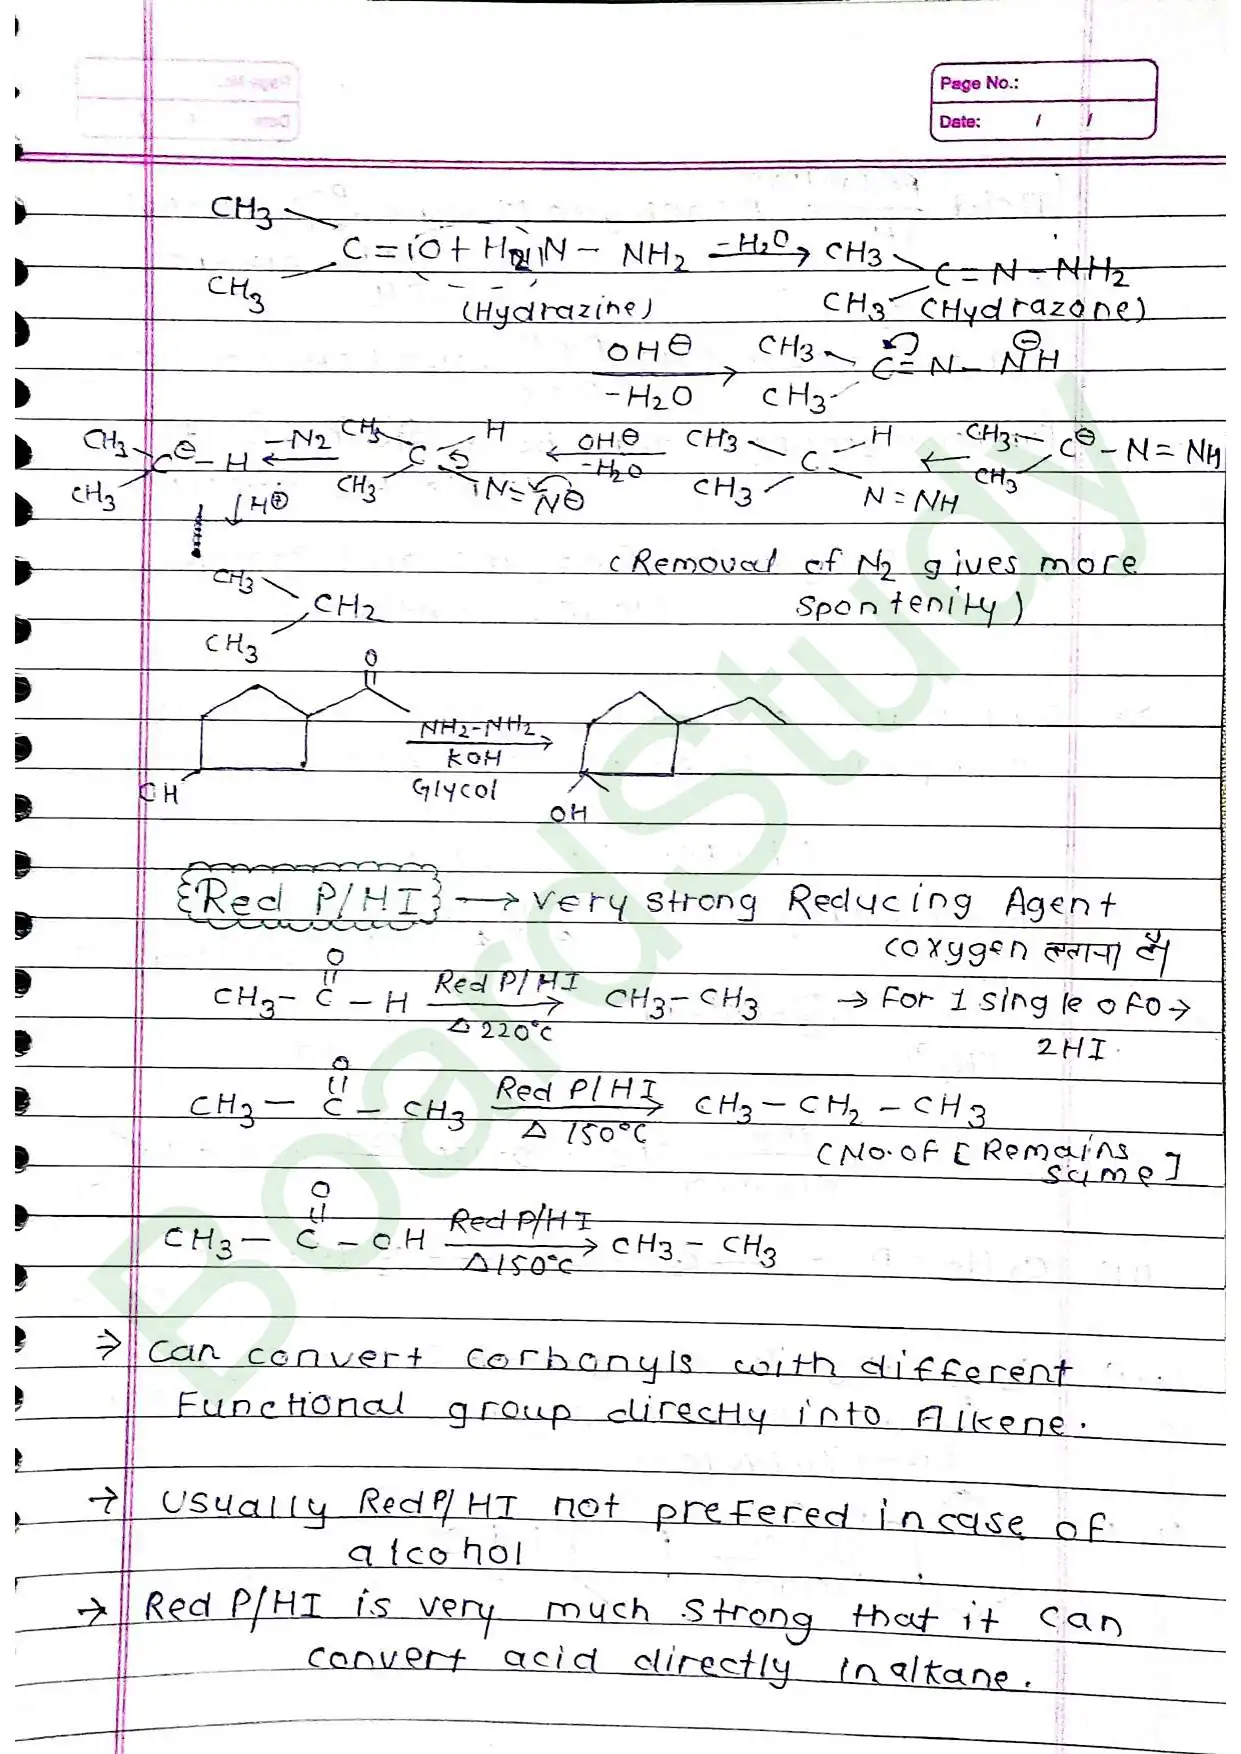 Page No.:
Date: / /
CH3
C = O + H2N - NH2 -H2O → CH3 C = N - NH2
CH3 (Hydrazine) CH3 (Hydrazone)
OH⊖ → -H2O CH3 CH3 C = N - N⊖H
CH3 CH3 C⊖ - H ← -N2 CH3 CH3 C H N = N⊖ ← OH⊖ -H2O CH3 CH3 C H N = NH ← CH3 CH3 C⊖ - N = NH
↓ H⊕
(Removal of N2 gives more
spontenity)
CH3
CH2
CH3
O
NH2-NH2
KOH
Glycol
OH
OH
Red P/HI → very strong Reducing Agent
(oxygen हटाना है)
O
CH3 - C - H Red P/HI → Δ 220°C CH3 - CH3 → For 1 single of O →
2HI
O
CH3 - C - CH3 Red P/HI → Δ 150°C CH3 - CH2 - CH3
(No. of [Remains
same]
O
CH3 - C - OH Red P/HI → Δ 150°C CH3 - CH3
⇒ can convert corbonyls with different
Functional group directly into Alkene.
→ Usually Red P/HI not prefered in case of
alcohol
→ Red P/HI is very much strong that it can
convert acid directly in alkane.
BoardStudy